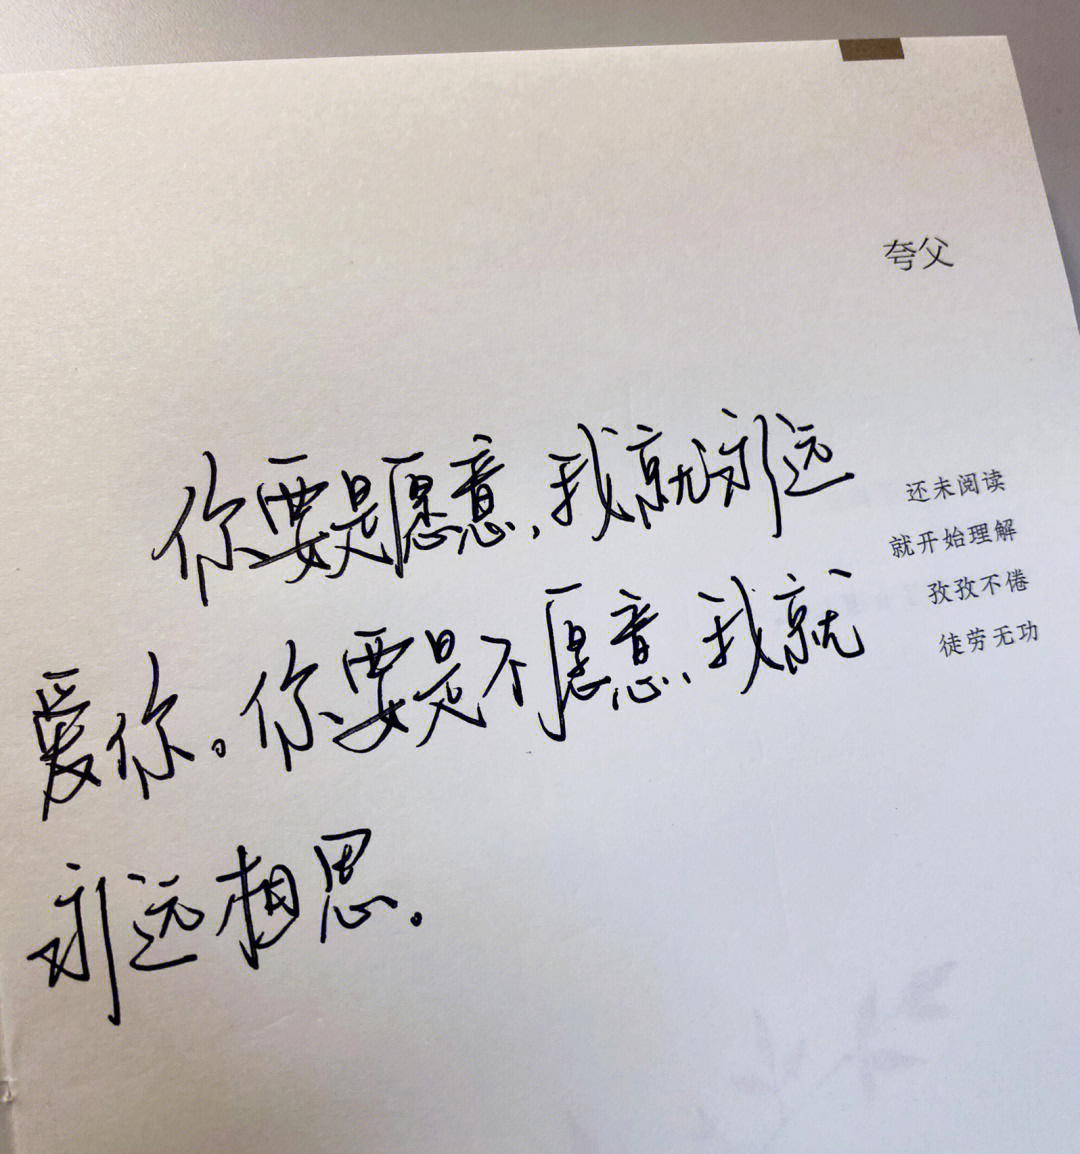 夸父
你要是愿意,我就永远
爱你。你要是不愿意,我就
永远相思。
还未阅读
就开始理解
孜孜不倦
徒劳无功